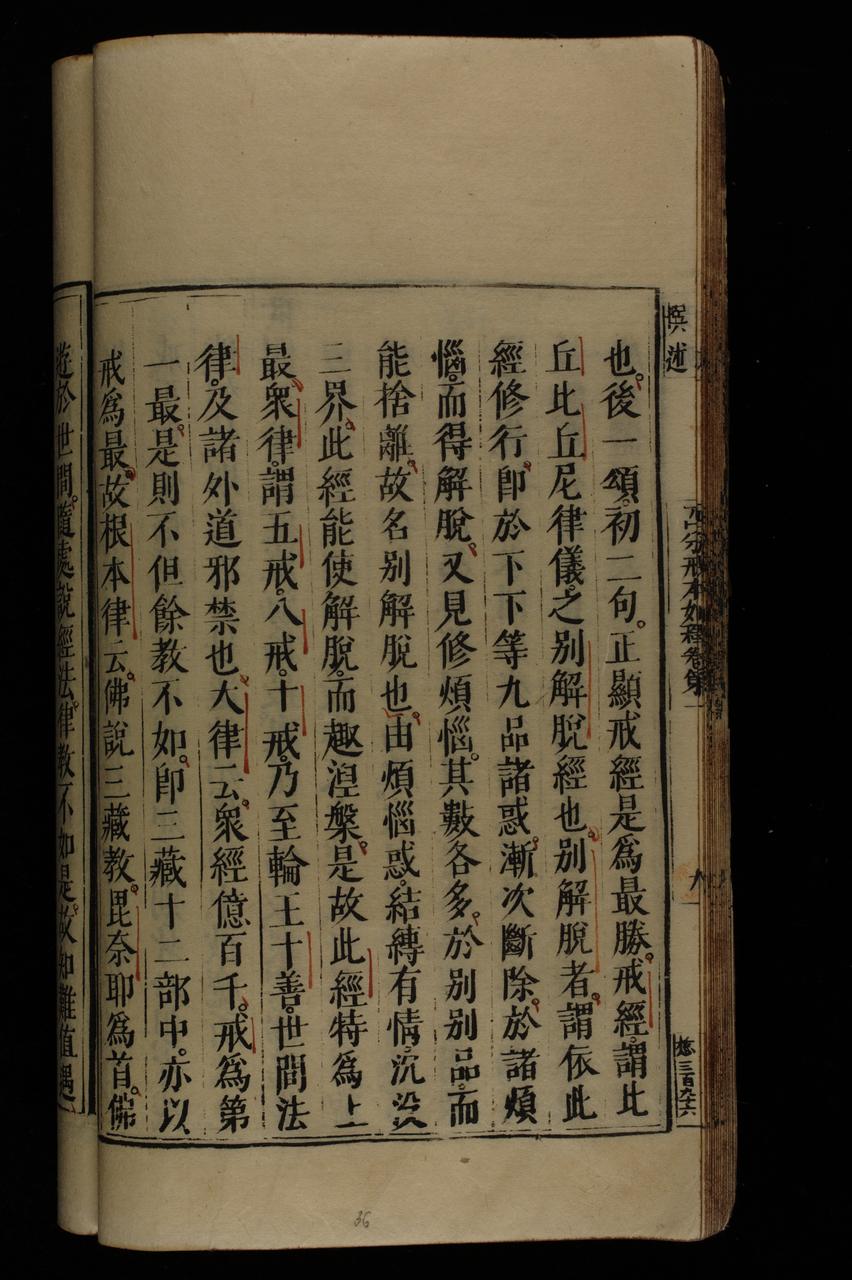 撰述
四分戒本如釋卷第一
也後一頌初二句正顯戒經是爲最勝戒經謂比
丘比丘尼律儀之别解脫經也别解脫者謂依此
經修行卽於下下等九品諸惑漸次斷除於諸煩
惱而得解脫又見修煩惱其數各多於别别品而
能捨離故名别解脫也由煩惱惑結縛有情沉没
三界此經能使解脫而趣涅槃是故此經特爲上
最衆律謂五戒八戒十戒乃至輪王十善世間法
律及諸外道邪禁也大律云衆經億百千戒爲第
一最是則不但餘教不如卽三藏十二部中亦以
戒爲最故根本律云佛說三藏教毘奈耶爲首佛
遊於世間隨處說經法律教不如是故知難值遇
36